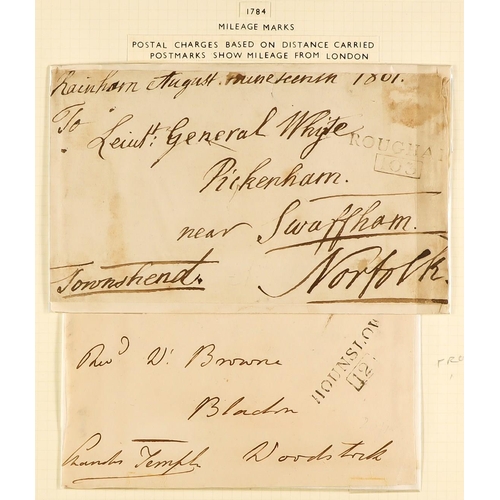 1784
MILEAGE MARKS
POSTAL CHARGES BASED ON DISTANCE CARRIED
POSTMARKS SHOW MILEAGE FROM LONDON
Rainham August nineteenth 1801.
To
Leiut: General Whyte
ROUGHAM
103
Pickenham.
near Swaffham.
Townshend. Norfolk.
HOUNSLOW
12
Revd Dr Browne
Bladon
Woodstock